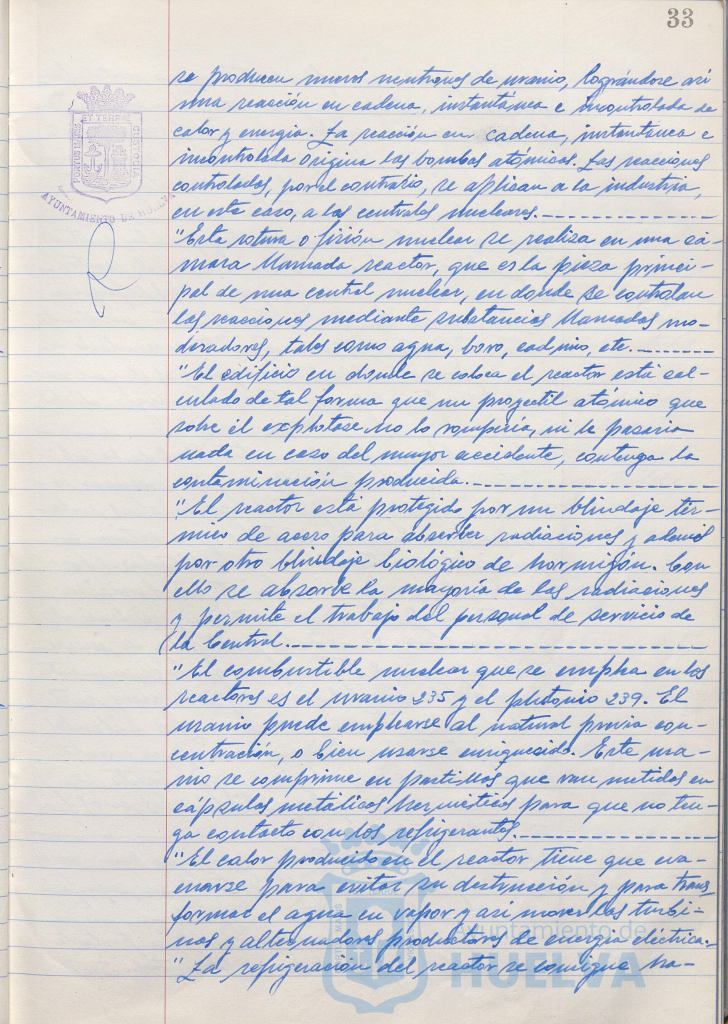 33
se producen nuevos neutrones de uranio, lográndose asi
una reacción en cadena, instantánea e incontrolada de
calor y energia. La reacción en cadena, instantanea e
incontrolada origina las bombas atómicas. Las reacciones
controladas, por el contrario, se aplican a la industria,
en este caso, a las centrales nucleares.
"Esta rotura o fisión nuclear se realiza en una cá-
mara llamada reactor, que es la pieza princi-
pal de una central nuclear, en donde se controlan
las reacciones mediante substancias llamadas mo-
deradores, tales como agua, boro, cadmio, etc.
"El edificio en donde se coloca el reactor está cal-
culado de tal forma que un proyectil atómico que
sobre él explotase no lo rompería, ni le pasaria
nada en caso del mayor accidente, contenga la
contaminación producida.
"El reactor está protegido por un blindaje tér-
mico de acero para absorber radiaciones y además
por otro blindaje biológico de hormigón. Con
ello se absorbe la mayoría de las radiaciones
y permite el trabajo del personal de servicio de
la Central.
"El combustible nuclear que se emplea en los
reactores es el uranio 235 y el plutonio 239. El
uranio puede emplearse al natural previa con-
centración, o bien usarse enriquecido. Este ura-
nio se comprime en pastillas que van metidas en
cápsulas metálicas herméticas para que no ten-
ga contacto con los refrigerantes.
"El calor producido en el reactor tiene que eva-
cuarse para evitar su destrucción y para trans-
formar el agua en vapor y asi mover las turbi-
nas y alternadores productores de energia eléctrica.
"La refrigeración del reactor se consigue ha-
PORTUS MARIS
ET TERRAE
CUSTODIA
AYUNTAMIENTO DE HUELVA
Ayuntamiento de
HUELVA